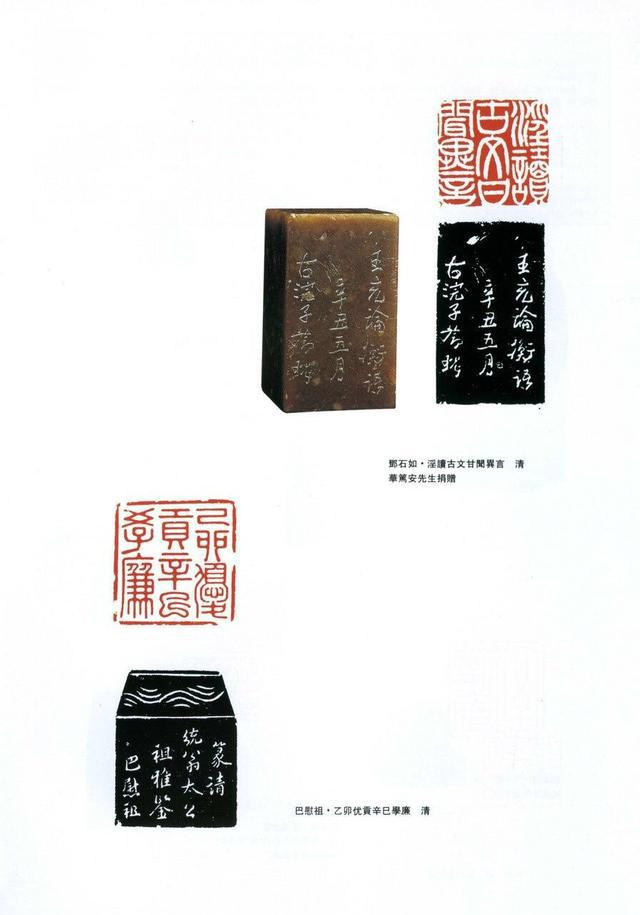 淫讀
古文甘
聞異言
王充論衡語
辛丑五月
古浣子
王充論衡語
辛丑五月
古浣子
鄧石如・淫讀古文甘聞異言 清
華篤安先生捐贈
乙卯優
貢辛巳
學廉
篆請
統翁太公
祖雅鑒
巴慰祖
巴慰祖・乙卯优貢辛巳學廉 清